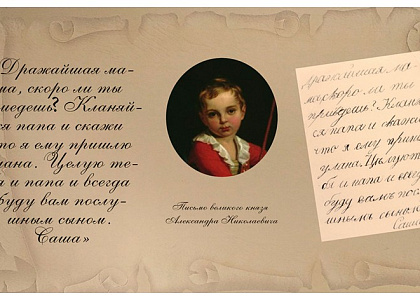 Дражайшая ма-
ма, скоро ли ты
иедешь? Кланяй-
ся папа и скажи
то я ему пришлю
лана. Целую те-
я и папа и всегда
буду вам послу-
шным сыном.
Саша»
Письмо великого князя
Александра Николаевича
Дражайшая ма-
ма скоро ли ты
приедешь? Клан
ся папа и скажи
что я ему при
улана. Целую
бя и папа и все
буду вамъ пос
шнымъ сыном
Саша